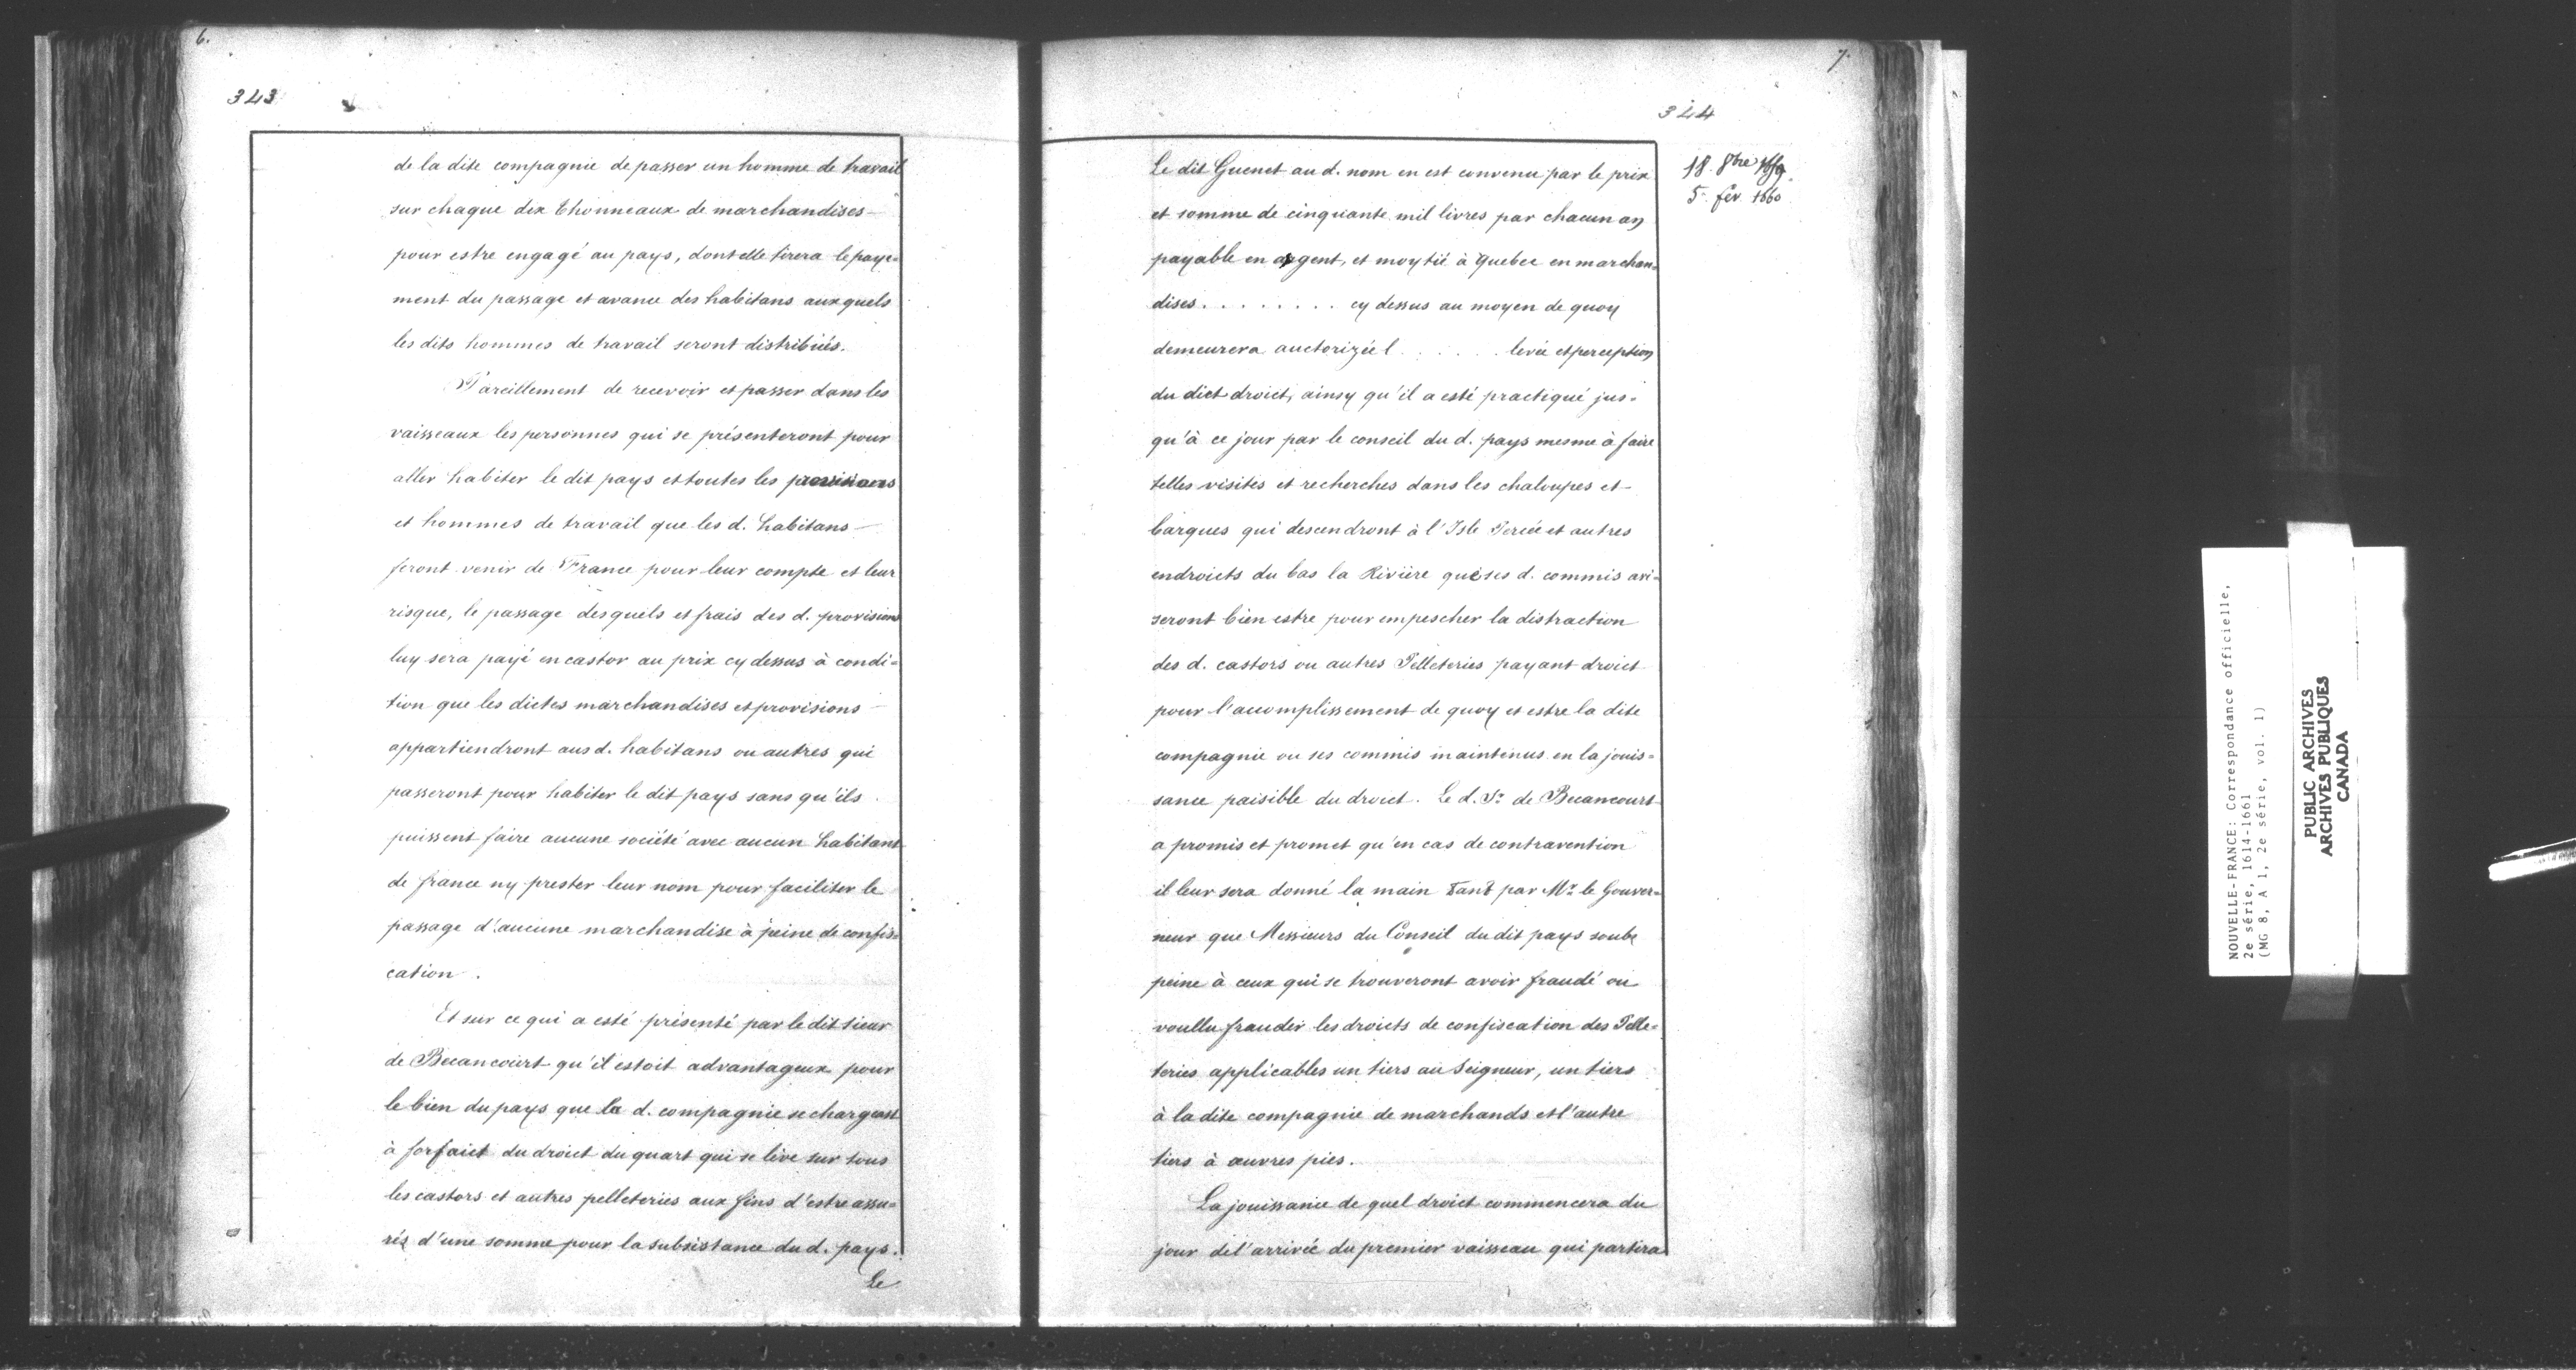 6.
343
de la dite compagnie de passer un homme de travail
sur chaque dix thonneaux de marchandises
pour estre engagé au pays, dont elle tirera le paye=
ment du passage et avance des habitans auxquels
les dits hommes de travail seront distribués.
Pareillement de recevoir et passer dans les
vaisseaux les personnes qui se présenteront pour
aller habiter le dit pays et toutes les provisions
et hommes de travail que les d. habitans
feront venir de France pour leur compte et leur
risque, le passage desquels et frais des d. provisions
luy sera payé en castor au prix cy dessus à condi=
tion que les dictes marchandises et provisions
appartiendront aus d. habitans ou autres qui
passeront pour habiter le dit pays sans qu'ils
puissent faire aucune société avec aucun habitant
de france ny prester leur nom pour faciliter le
passage d'aucune marchandise à peine de confis=
cation.
Et sur ce qui a esté présenté par le dit sieur
de Becancourt qu'il estoit advantageux pour
le bien du pays que la d. compagnie se chargeast
à forfaict du droict du quart qui se lève sur tous
les castors et autres pelleteries aux fins d'estre assu=
rés d'une somme pour la subsistance du d. pays.
Le
7.
344
18. 8bre 1659
5. fév. 1660
Le dit Guenet au d. nom en est convenu par le prix
et somme de cinquante mil livres par chacun an
payable en argent, et moytié à Quebec en marchan=
dises . . . . . . . . cy dessus au moyen de quoy
demeurera auctorizée l . . . . . levée et perception
du dict droict, ainsy qu'il a esté practiqué jus=
qu'à ce jour par le conseil du d. pays mesme à faire
telles visites et recherches dans les chaloupes et
barques qui descendront à l'Isle Percée et autres
endroicts du bas la Rivière que ses d. commis avi=
seront bien estre pour empescher la distraction
des d. castors ou autres Pelleteries payant droict
pour l'accomplissement de quoy et estre la dite
compagnie ou ses commis maintenus en la jouis=
sance paisible du droict. Le d. Sr. de Becancourt
a promis et promet qu'en cas de contravention
il leur sera donné la main tant par Mr. le Gouver=
neur que Messieurs du Conseil du dit pays soubz
peine à ceux qui se trouveront avoir fraudé ou
voullu frauder les droicts de confiscation des Pelle=
teries applicables un tiers au Seigneur, un tiers
à la dite compagnie de marchands et l'autre
tiers à œuvres pies.
La jouissance de quel droict commencera du
jour de l'arrivée du premier vaisseau qui partira
NOUVELLE-FRANCE: Correspondance officielle,
2e série, 1614-1661
(MG 8, A 1, 2e série, vol. 1)
PUBLIC ARCHIVES
ARCHIVES PUBLIQUES
CANADA